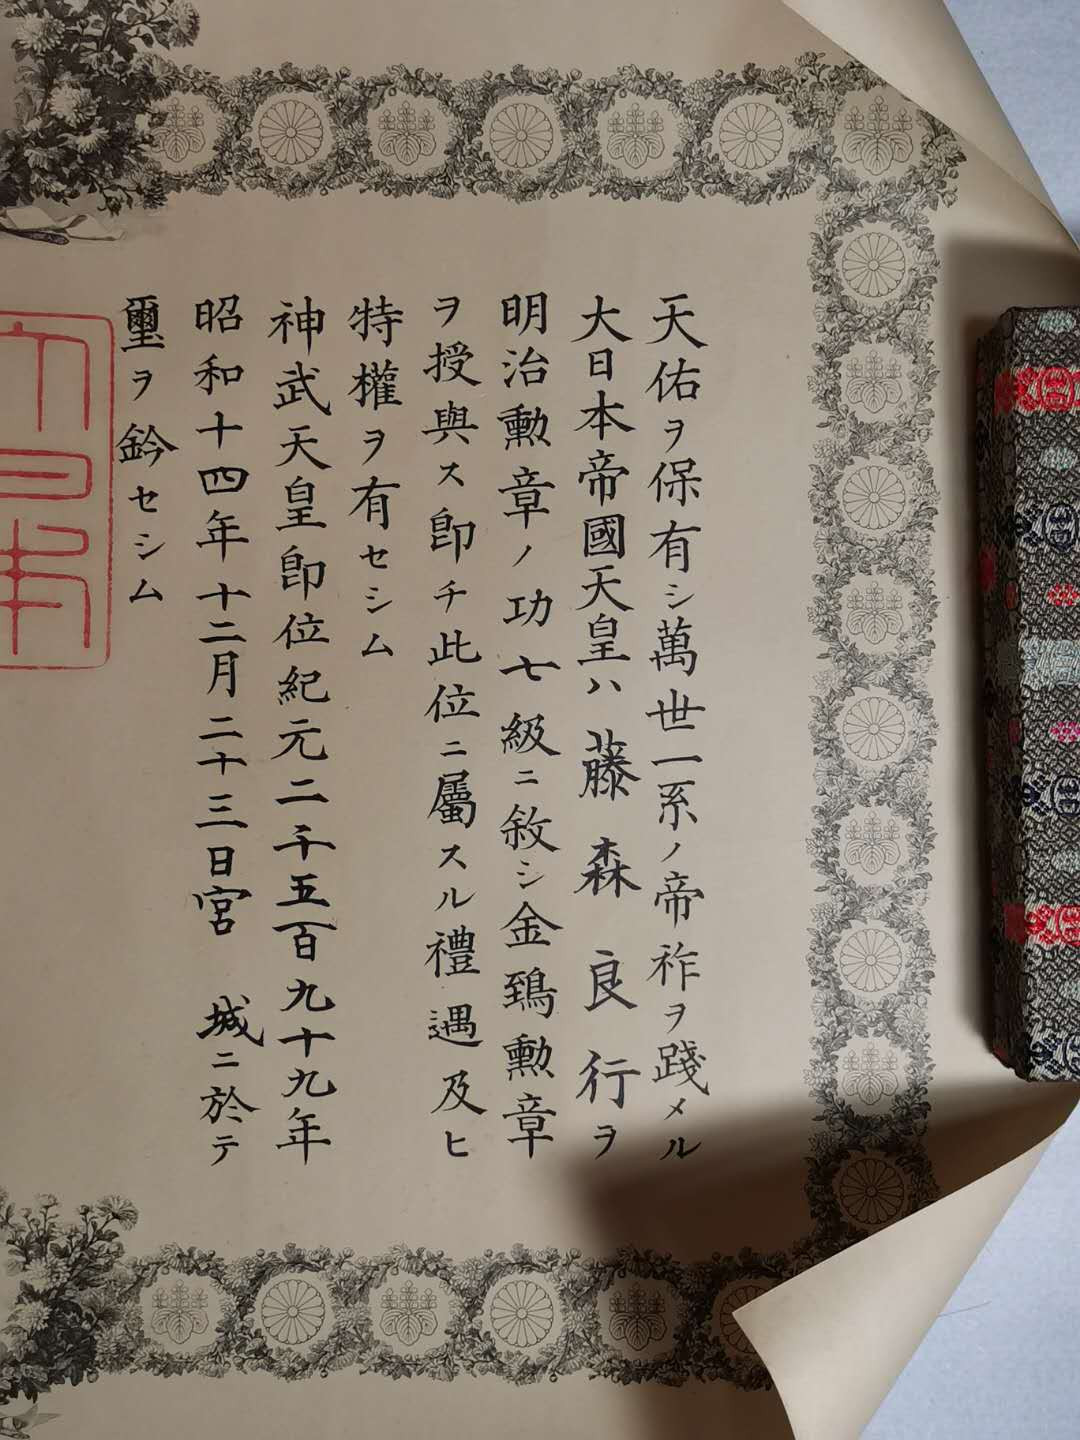 天佑ヲ保有シ萬世一系ノ帝祚ヲ踐メル
大日本帝國天皇ハ藤森良行ヲ
明治勲章ノ功七級ニ敘シ金鵄勲章
ヲ授與ス即チ此位ニ屬スル禮遇及ヒ
特權ヲ有セシム
神武天皇即位紀元二千五百九十九年
昭和十四年十二月二十三日宮城ニ於テ
璽ヲ鈐セシム